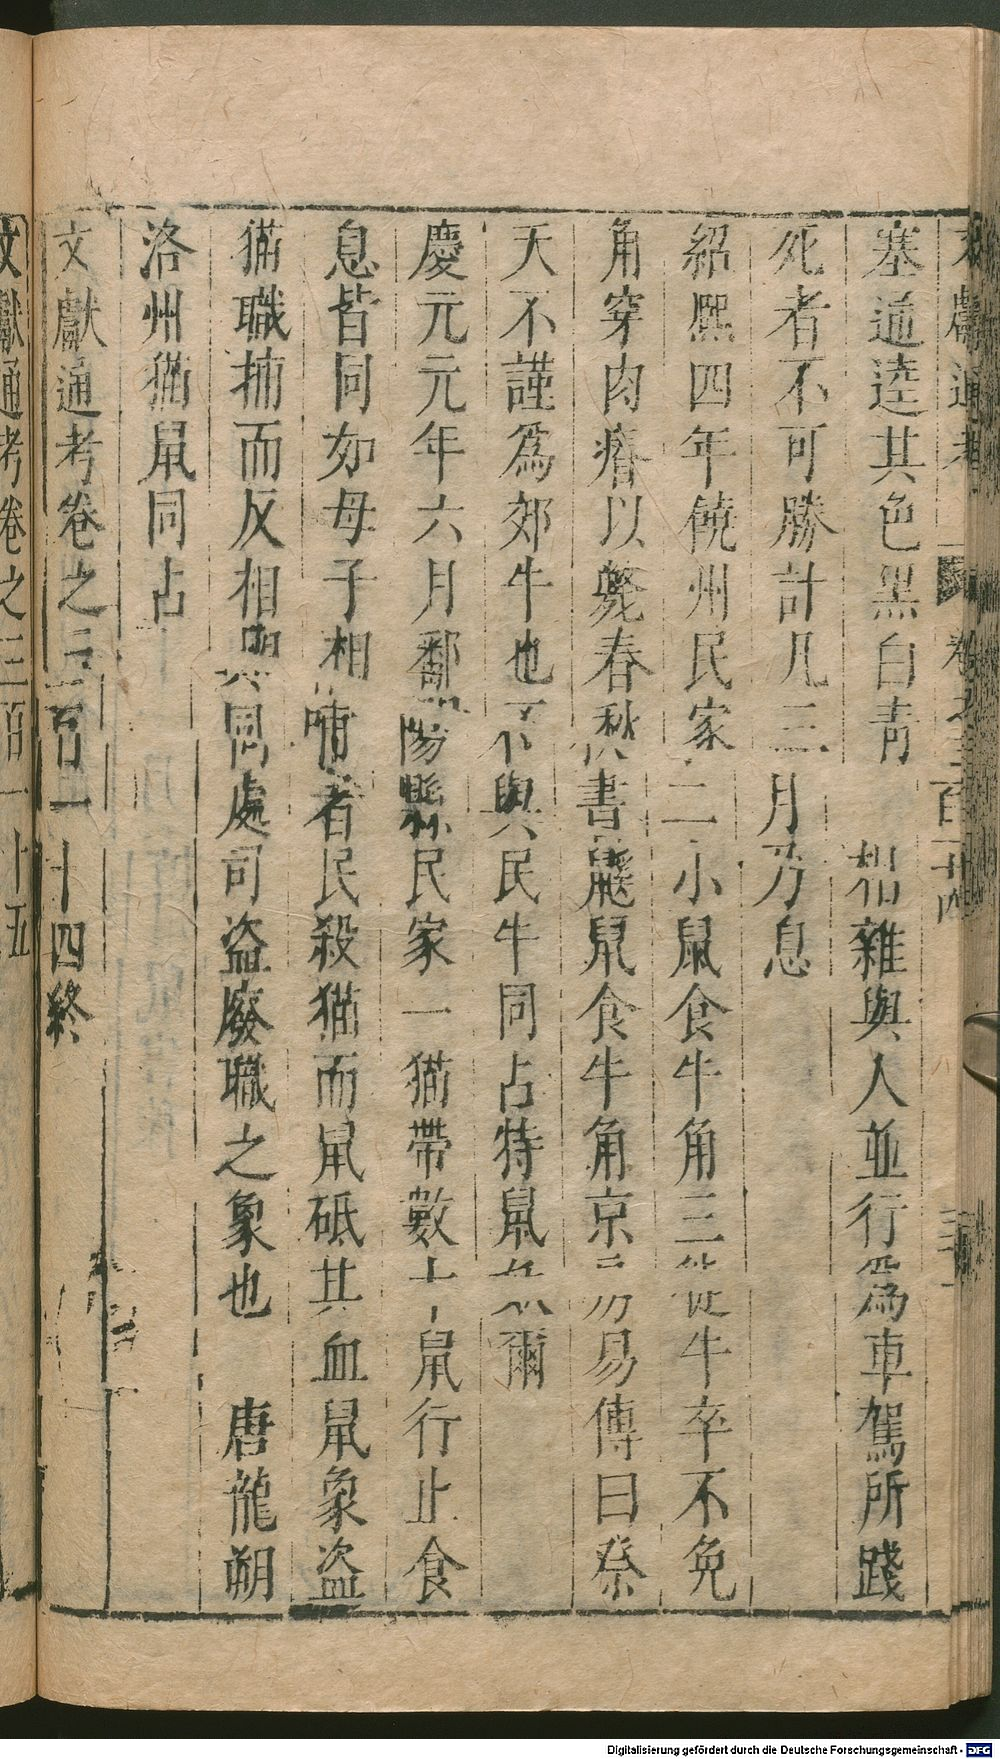 文獻通考 卷之三百十四
塞通逵其色黑白青 相雜與人並行爲車駕所踐
死者不可勝計凡三月乃息
紹熙四年饒州民家二小鼠食牛角三徙牛牢不免
角穿肉瘠以斃春秋書鼷鼠食牛角京房易傳曰祭
天不謹爲郊牛也不與民牛同占特鼠爲爾
慶元元年六月鄱陽縣民家一猫帶數十鼠行止食
息皆同如母子相哺者民殺猫而鼠砥其血鼠象盜
猫職捕而反相與同處司盜廢職之象也 唐龍朔
洛州猫鼠同占
文獻通考卷之三百一十四終
文獻通考卷之三百一十五
Digitalisierung gefördert durch die Deutsche Forschungsgemeinschaft - DFG